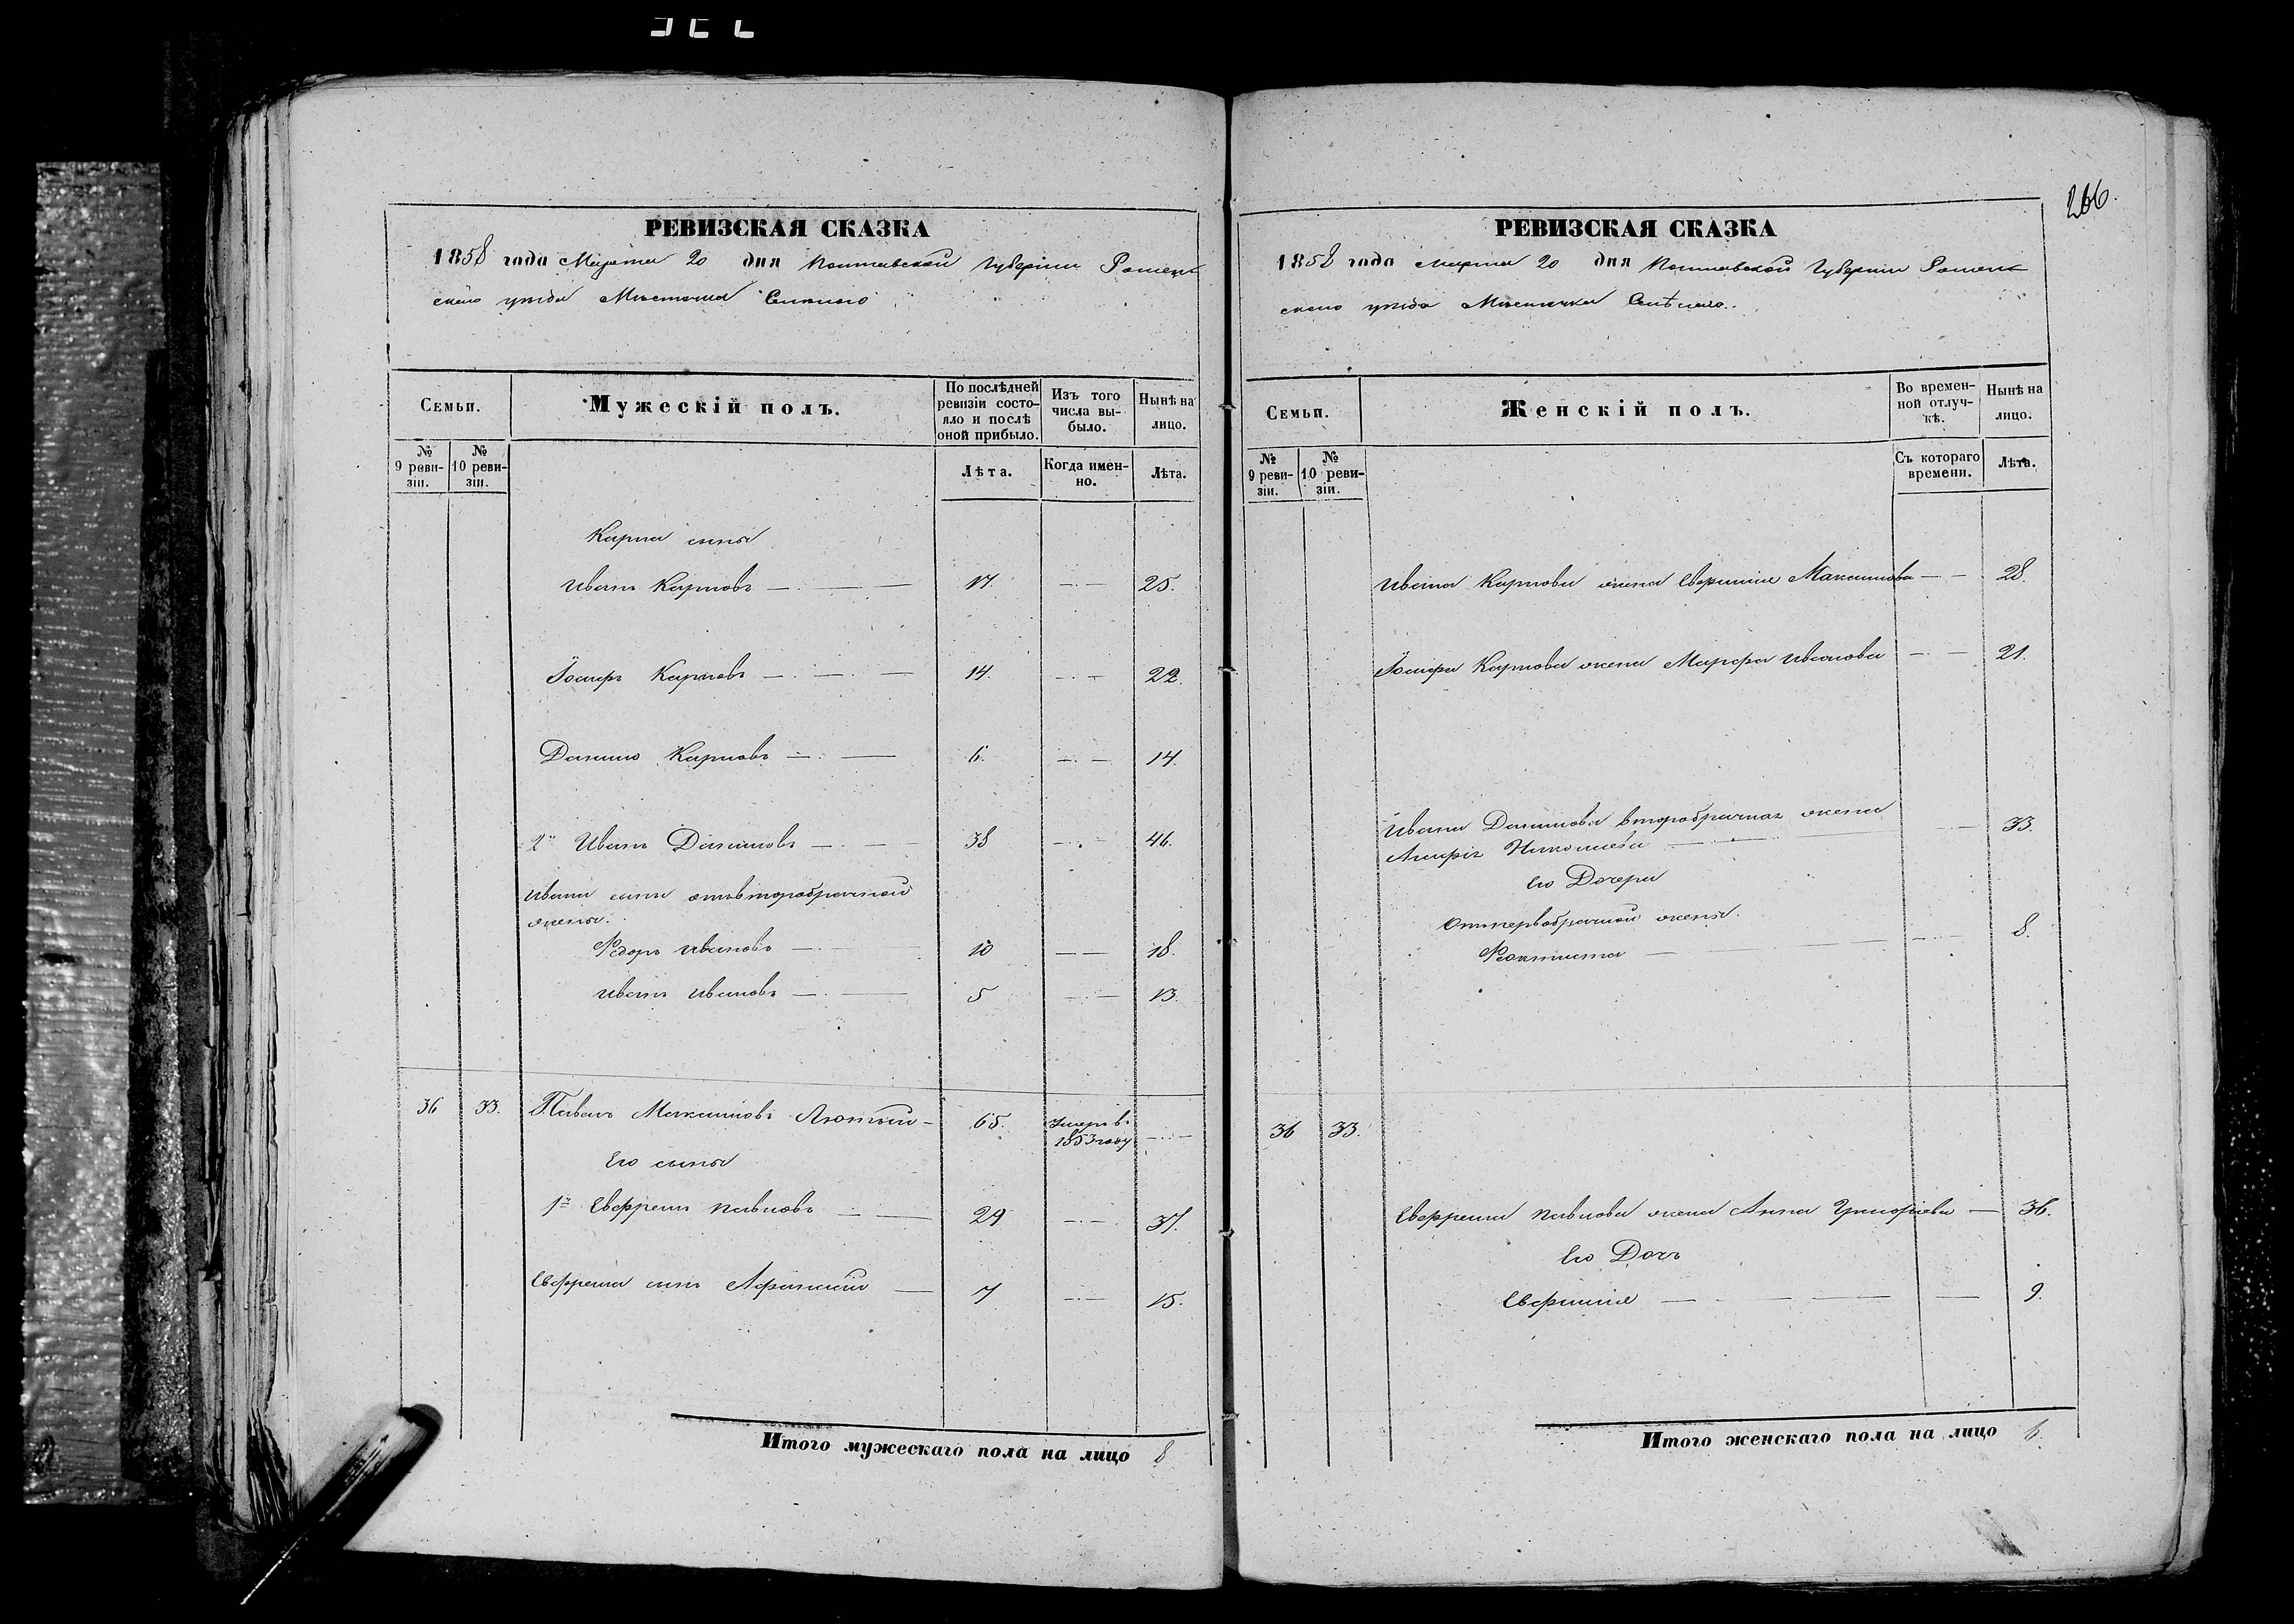 266.
РЕВИЗСКАЯ СКАЗКА
1858 года Марта 20 дня Полтавской Губерніи Роменскаго уѣзда Мѣстечка Смѣлаго
Семьи.
Мужескій полъ.
По послѣдней ревизіи состояло и послѣ оной прибыло.
Изъ того числа выбыло.
Нынѣ на лицо.
№ 9 ревизіи.
№ 10 ревизіи.
Лѣта.
Когда именно.
Лѣта.
Карпа сыны
Иванъ Карповъ 17. 25.
Іосифъ Карповъ 14. 22.
Данило Карповъ 6. 14.
2й Иванъ Даниловъ 38 46.
Ивана сыны отъ второбрачной
жены.
Федоръ Ивановъ 10 18.
Иванъ Ивановъ 5 13.
36 33. Павелъ Максимовъ Лютый 65. Умеръ въ
1853 году
Его сыны
1й Евфремъ Павловъ 29 37.
Евфрема сынъ Афанасий 7 15.
Итого мужескаго пола на лицо 8
РЕВИЗСКАЯ СКАЗКА
1858 года Марта 20 дня Полтавской Губерніи Роменскаго уѣзда Мѣстечка Смѣлаго.
Семьи.
Женскій полъ.
Во временной отлучкѣ.
Нынѣ на лицо.
№ 9 ревизіи.
№ 10 ревизіи.
Съ котораго времени.
Лѣта.
Ивана Карпова жена Евфимія Максимова 28.
Іосифа Карпова жена Марфа Иванова 21.
Ивана Данилова второбрачная жена
Николаева 33.
Его Дочери
Отъ первобрачной жены.
Феоктиста 8.
36 33.
Евфрема Павлова жена Анна Григоріева 36.
Его Дочь
Евфимія 9.
Итого женскаго пола на лицо 6.